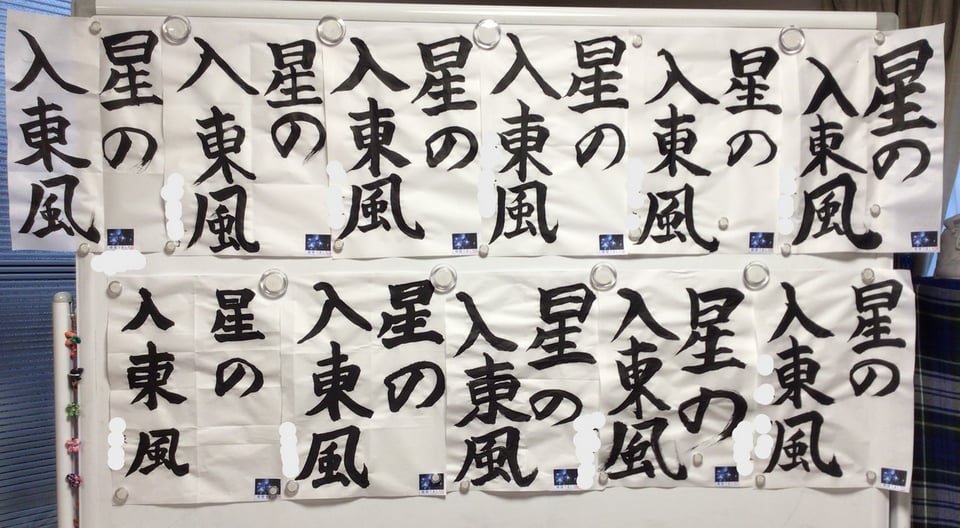 星の
入東風
星の
入東風
星の
入東風
星の
入東風
星の
入東風
星の
入東風
星の
入東風
星の
入東風
星の
入東風
星の
入東風
星の
入東風